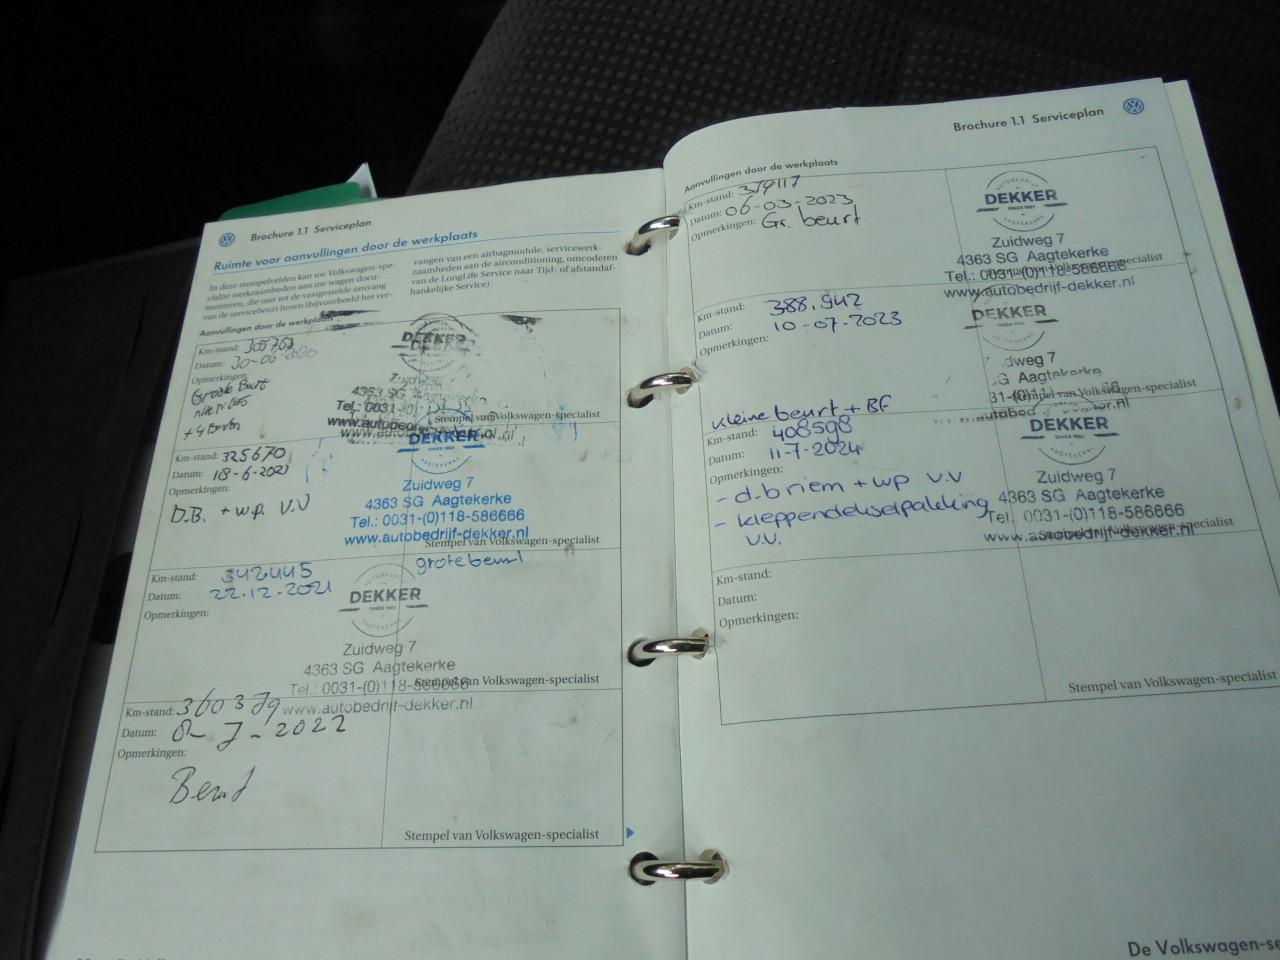 Brochure 1.1 Serviceplan
Ruimte voor aanvullingen door de werkplaats
In deze stempelvelden kan uw Volkswagen-spe-
cialist werkzaamheden aan uw wagen docu-
menteren, die niet tot de vastgestelde omvang
van de servicebeurt horen (bijvoorbeeld het ver-
vangen van een airbagmodule, servicewerk-
zaamheden aan de airconditioning, omcoderen
van de LongLife Service naar Tijd- of afstandaf-
hankelijke Service).
Aanvullingen door de werkplaats
Km-stand: 305763
Datum: 30-06-2020
Opmerkingen:
Grote Beurt
DEKKER
4363 SG
Tel.: 0031-
www.autobedrijf-dekker.nl
Stempel van Volkswagen-specialist
Km-stand: 325670
Datum: 18-6-2021
Opmerkingen:
D.B. + w.p. V.V
DEKKER
AAGTEKERKE
Zuidweg 7
4363 SG Aagtekerke
Tel.: 0031-(0)118-586666
www.autobedrijf-dekker.nl
Stempel van Volkswagen-specialist
Km-stand: 342445
Datum: 22-12-2021
Opmerkingen:
grote beurt
AUTOBEDRIJF
DEKKER
SINDS 1983
AAGTEKERKE
Zuidweg 7
4363 SG Aagtekerke
Tel.: 0031-(0)118-586666
www.autobedrijf-dekker.nl
Stempel van Volkswagen-specialist
Km-stand: 360379
Datum: 8-7-2022
Opmerkingen:
Beurt
Stempel van Volkswagen-specialist
Brochure 1.1 Serviceplan
Aanvullingen door de werkplaats
Km-stand: 379117
Datum: 06-03-2023
Opmerkingen: Gr. beurt
AUTOBEDRIJF
DEKKER
SINDS 1983
AAGTEKERKE
Zuidweg 7
4363 SG Aagtekerke
Tel.: 0031-(0)118-586666
www.autobedrijf-dekker.nl
Stempel van Volkswagen-specialist
Km-stand: 388.942
Datum: 10-07-2023
Opmerkingen:
kleine beurt + BF
DEKKER
dweg 7
G Aagtekerke
Stempel van Volkswagen-specialist
Km-stand: 408598
Datum: 11-7-2024
Opmerkingen:
- d.briem + wp V.V
- kleppendekselpakking
V.V.
DEKKER
SINDS 1983
AAGTEKERKE
Zuidweg 7
4363 SG Aagtekerke
Tel.: 0031-(0)118-586666
www.autobedrijf-dekker.nl
Stempel van Volkswagen-specialist
Km-stand:
Datum:
Opmerkingen:
Stempel van Volkswagen-specialist
De Volkswagen-se